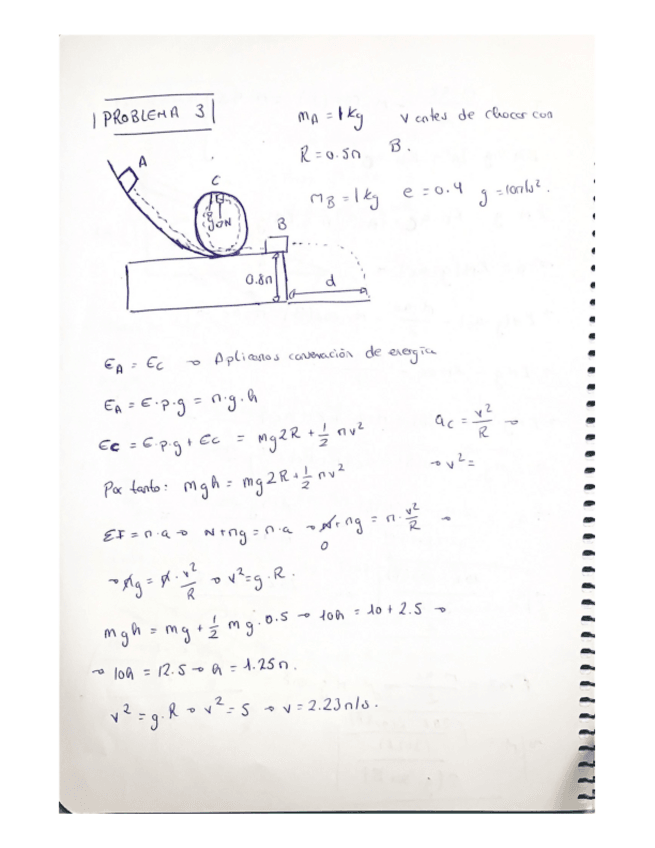 PROBLEMA 3
mA = 1kg   V antes de chocar con B.
R = 0.5m
mB = 1kg   e = 0.4   g = 10m/s².
A
C
B
0.8m
d
EA = EC → Aplicamos conservación de energía
EA = E.p.g = m.g.h
EC = E.p.g + Ec = mg2R + 1/2 mv²   ac = v²/R →
→ v² =
Por tanto: mgh = mg2R + 1/2 mv²
ΣF = m.a → N + mg = m.a → N + mg = m. v²/R →
0
→ mg = m. v²/R → v² = g.R.
mgh = mg + 1/2 mg.0.5 → 10h = 10 + 2.5 →
→ 10h = 12.5 → h = 1.25m.
v² = g.R → v² = 5 → v = 2.23m/s.